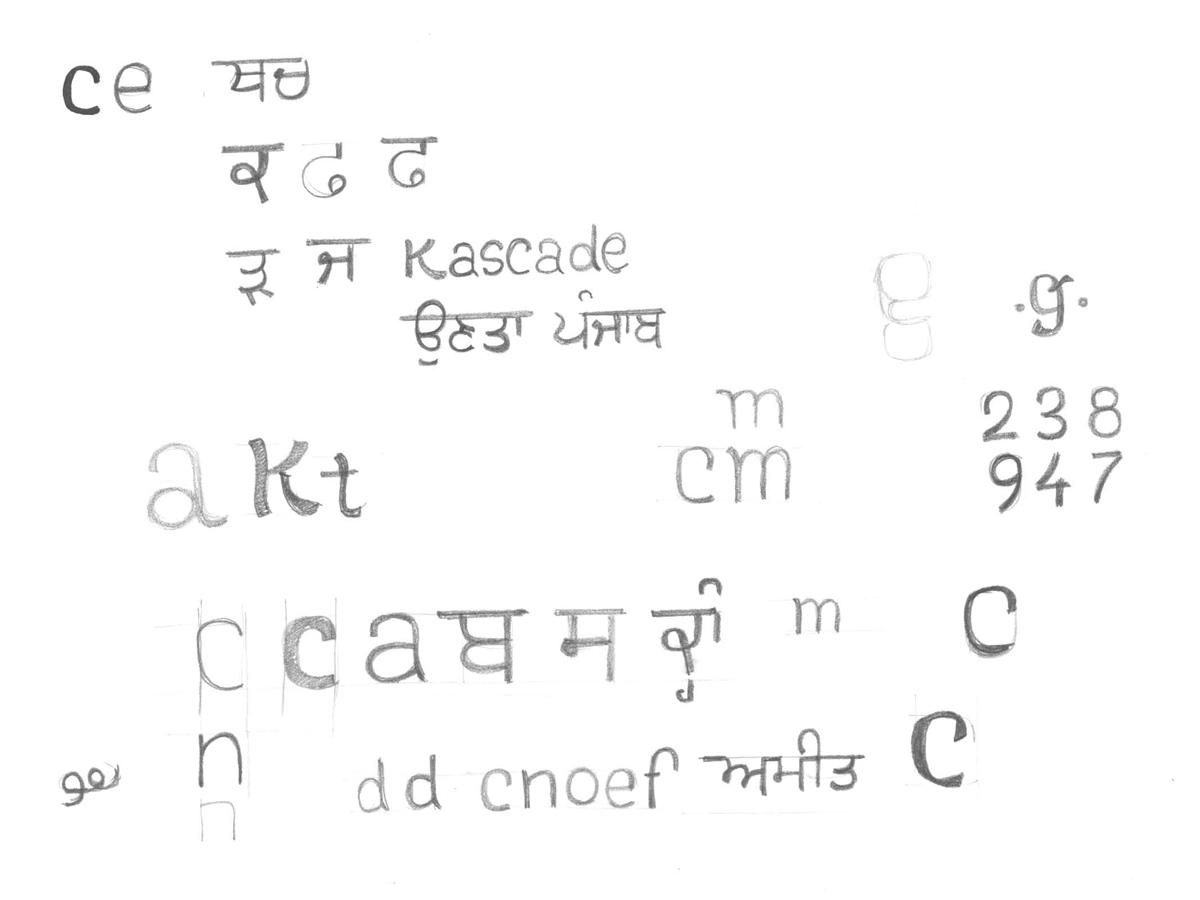 ce ਖਚ
ਕ ਢ ਢ
ੜ ਜ Kascade
g .g.
ਉਣਤਾ ਪੰਜਾਬ
m 238
akt cm 947
c c a ਬ ਸ m C
n dd cnoef ਅਮੀਤ C
n